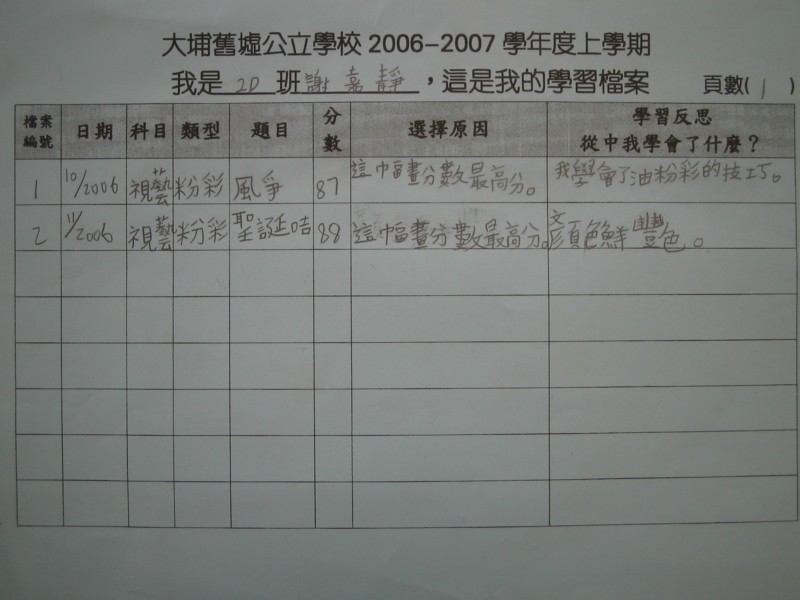 大埔舊墟公立學校 2006-2007 學年度上學期
我是 2D 班 謝嘉靜,這是我的學習檔案 頁數( 1 )
檔案編號 日期 科目 類型 題目 分數 選擇原因 學習反思 從中我學會了什麼?
1 10/2006 視藝 粉彩 風爭 87 這巾畐畫分數最高分。 我學會了油粉彩的技巧。
2 11/2006 視藝 粉彩 聖誕咭 88 這巾畐畫分數最高分。 顏色鮮豐色。